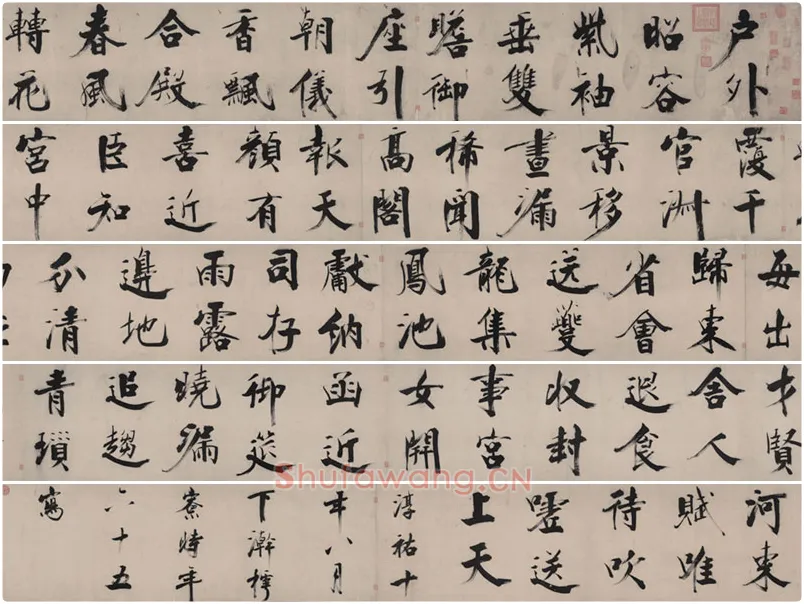 戶外
昭容
紫袖
垂雙
瞻御
座引
朝儀
香飄
合殿
春風
轉花
覆千
官淑
景移
晝漏
稀聞
高閣
報天
顏有
喜近
臣知
宮中
每出
歸東
省會
送夔
龍集
鳳池
獻納
司存
雨露
邊地
分清
才賢
舍人
退食
收封
事宮
女開
函近
御筵
曉漏
追趨
青瑣
河東
賦唯
待吹
噓送
上天
淳祐十
年八月
下澣樗
寮時年
六十五
寫
Shufawang.CN